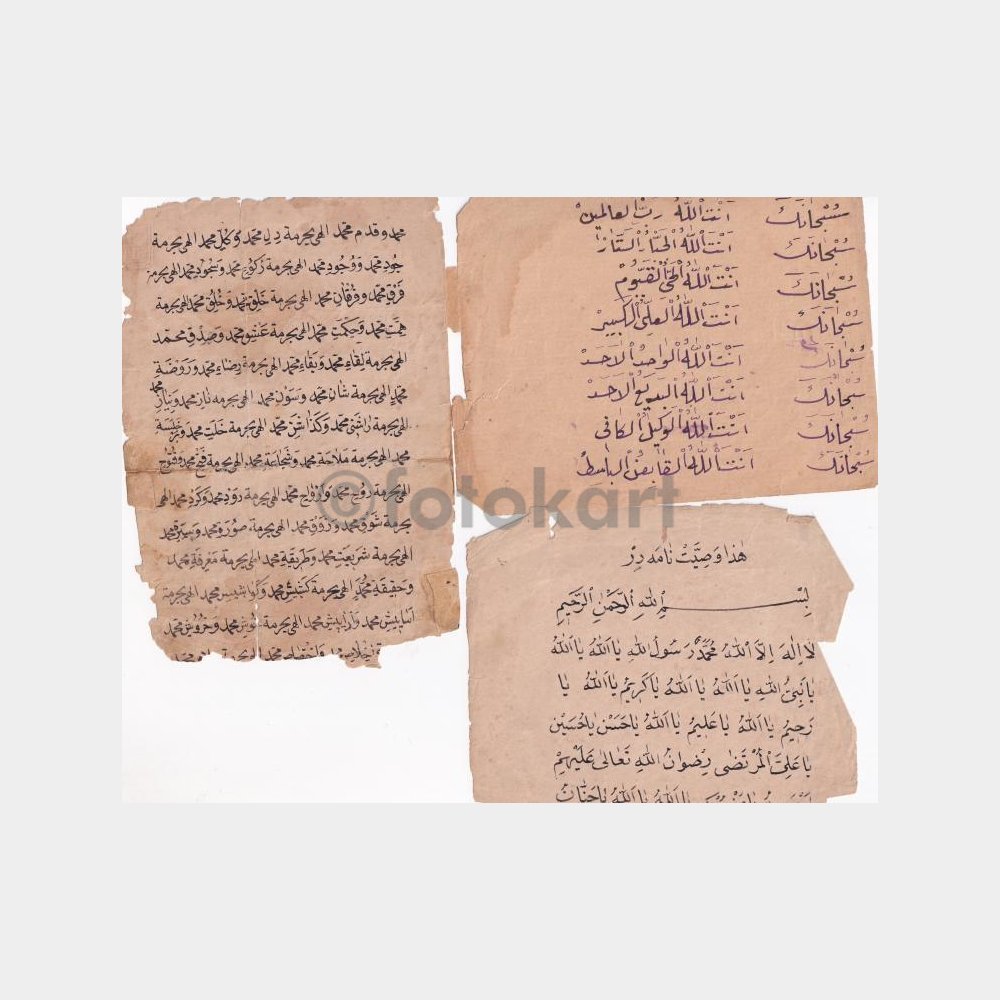 محمد وقدم محمد الهى بحرمة دل محمد وكل محمد الهى بحرمة
جود محمد ووجود محمد الهى بحرمة ركوع محمد وسجود محمد الهى بحرمة
فرق محمد وفرقان محمد الهى بحرمة خلق محمد وخلق محمد الهى بحرمة
همت محمد وحكمت محمد الهى بحرمة عشق محمد وصدق محمد
الهى بحرمة لقاء محمد وبقاء محمد الهى بحرمة رضاء محمد وروضة
محمد الهى بحرمة شان محمد محمد الهى بحرمه ناز محمد ونياز محمد
الهى بحرمة محمد محمد الهى بحرمة محمد
محمد الهى بحرمة ملاحة محمد وشجاعة محمد الهى بحرمة فتح محمد وفتوح
الهى بحرمة روح محمد وارواح محمد الهى بحرمة محمد محمد الهى
بحرمة شوق محمد وذوق محمد الهى بحرمة محمد محمد
الهى بحرمة شريعت محمد وطريقة محمد الهى بحرمة معرفة محمد
وحقيقة محمد الهى بحرمة محمد محمد الهى بحرمة
محمد محمد الهى بحرمة محمد محمد
سُبْحَانَكَ اَنْتَ اللّٰهُ رَبُّ العالمينْ
سُبْحَانَكَ اَنْتَ اللّٰهُ السَّتَّارْ
سُبْحَانَكَ اَنْتَ اللّٰهُ الْحَىُّ الْقَيُّومْ
سُبْحَانَكَ اَنْتَ اللّٰهُ الْعَلِىُّ الْكَبِيرْ
سُبْحَانَكَ اَنْتَ اللّٰهُ الْوَاحِدُ الْاَحَدْ
سُبْحَانَكَ اَنْتَ اللّٰهُ الْبَدِيعُ الْاَحَدْ
سُبْحَانَكَ اَنْتَ اللّٰهُ الْوَكِيلُ الْكَافِى
سُبْحَانَكَ اَنْتَ اللّٰهُ الْقَابِضُ الْبَاسِطْ
هٰذا وَصِيَّتْ نامَه دِرْ
بِسْمِ اللّٰهِ الرَّحْمٰنِ الرَّحِيمِ
لَا اِلٰهَ اِلَّا اَللّٰهُ مُحَمَّدٌ رَسُولُ اللّٰهِ يَا اَللّٰهُ يَا اَللّٰهُ
يَا نَبِىُّ اللّٰهِ يَا اَللّٰهُ يَا اَللّٰهُ يَا كَرِيمُ يَا اَللّٰهُ يَا
رَحِيمُ يَا اَللّٰهُ يَا عَلِيمُ يَا اَللّٰهُ يَا حَسَنْ يَا حُسَيْن
يَا عَلِىَّ الْمُرْتَضٰى رِضْوَانُ اللّٰهِ تَعَالٰى عَلَيْهِمْ
يَا اَللّٰهُ يَا اَللّٰهُ يَا حَنَّانُ
©fotokart